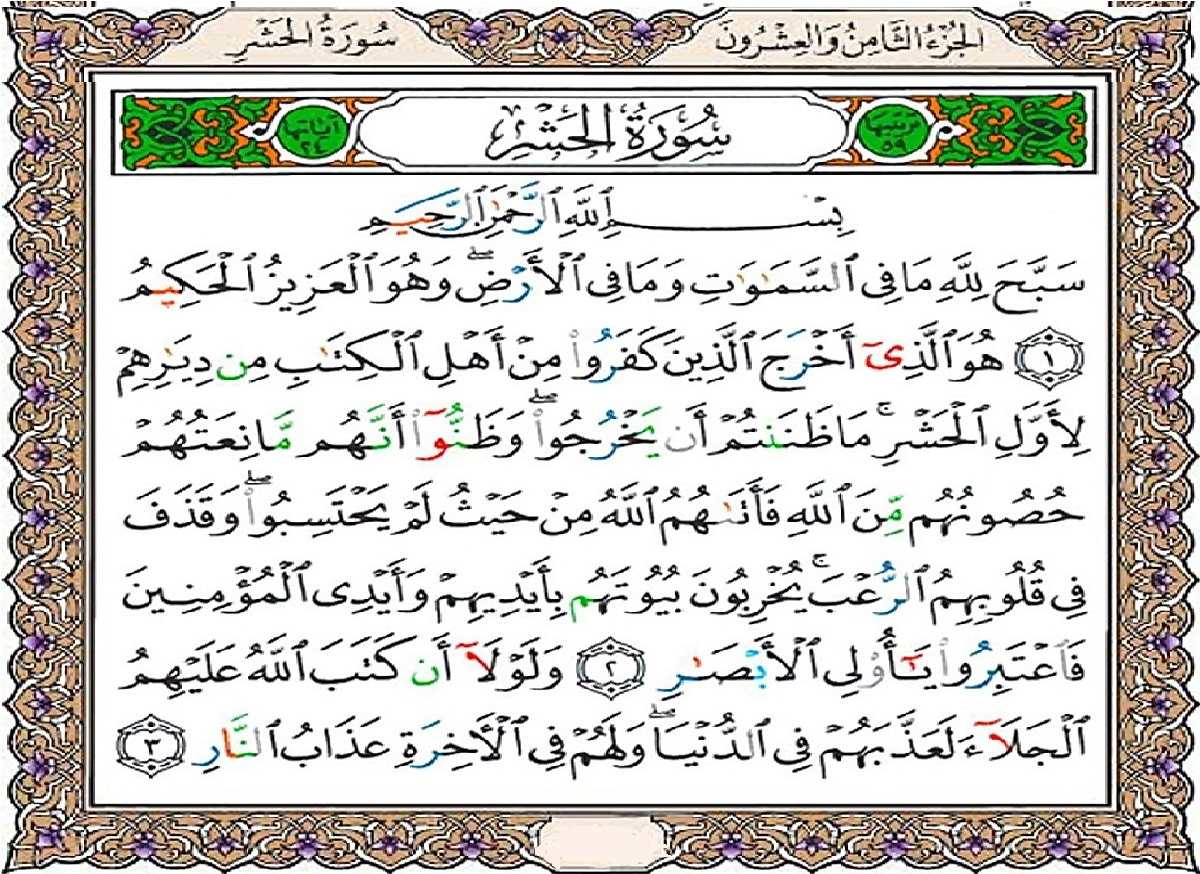 الجزء الثامن والعشرون سورة الحشر
ترتيبها ٥٩ سُورَةُ الحَشْرِ آياتها ٢٤
بِسْمِ ٱللَّهِ ٱلرَّحْمَٰنِ ٱلرَّحِيمِ
سَبَّحَ لِلَّهِ مَا فِى ٱلسَّمَٰوَٰتِ وَمَا فِى ٱلْأَرْضِۖ وَهُوَ ٱلْعَزِيزُ ٱلْحَكِيمُ
١ هُوَ ٱلَّذِىٓ أَخْرَجَ ٱلَّذِينَ كَفَرُوا۟ مِنْ أَهْلِ ٱلْكِتَٰبِ مِن دِيَٰرِهِمْ
لِأَوَّلِ ٱلْحَشْرِۚ مَا ظَنَنتُمْ أَن يَخْرُجُوا۟ۖ وَظَنُّوٓا۟ أَنَّهُم مَّانِعَتُهُمْ
حُصُونُهُم مِّنَ ٱللَّهِ فَأَتَىٰهُمُ ٱللَّهُ مِنْ حَيْثُ لَمْ يَحْتَسِبُوا۟ۖ وَقَذَفَ
فِى قُلُوبِهِمُ ٱلرُّعْبَۚ يُخْرِبُونَ بُيُوتَهُم بِأَيْدِيهِمْ وَأَيْدِى ٱلْمُؤْمِنِينَ
فَٱعْتَبِرُوا۟ يَٰٓأُو۟لِى ٱلْأَبْصَٰرِ ٢ وَلَوْلَآ أَن كَتَبَ ٱللَّهُ عَلَيْهِمُ
ٱلْجَلَآءَ لَعَذَّبَهُمْ فِى ٱلدُّنْيَاۖ وَلَهُمْ فِى ٱلْءَاخِرَةِ عَذَابُ ٱلنَّارِ ٣